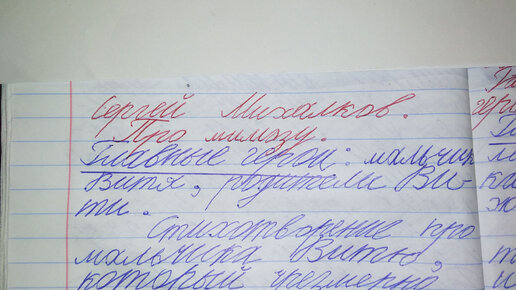 Сергей Михалков.
Про мимозу.
Главные герои: мальчик
Витя, родители Ви-
ти.
Стихотворение про
мальчика Витю,
который чрезмерно